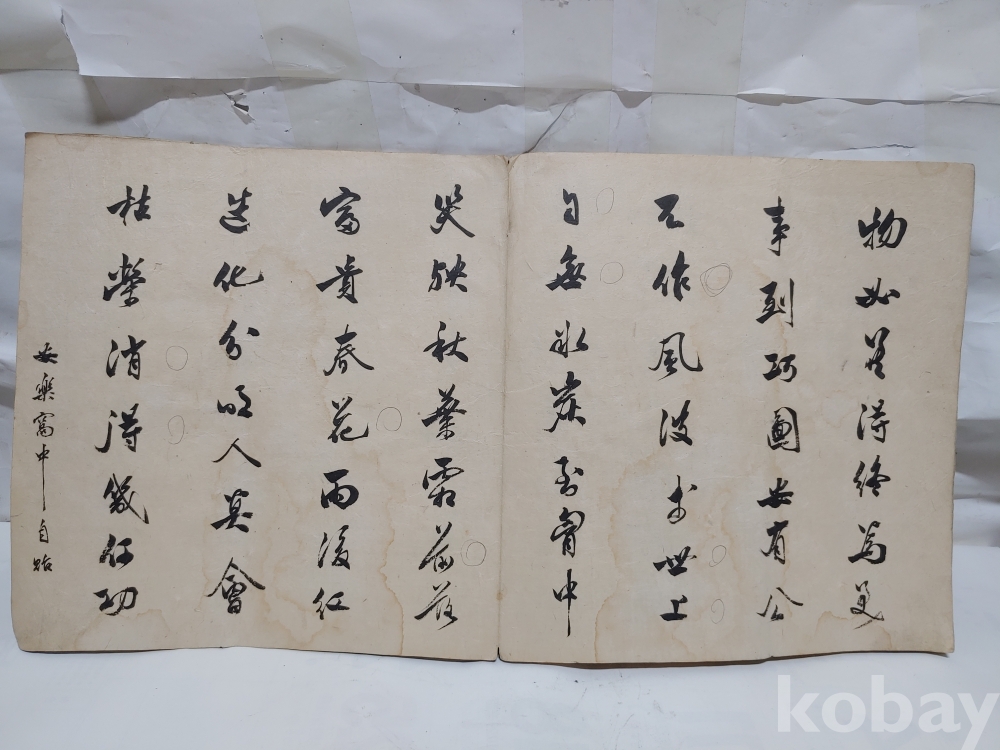 物如善得終爲美
事到巧圖安有公
不作風波於世上
自無氷炭到胷中
災殃秋葉霜前落
富貴春花雨後紅
造化分明人莫會
枯榮消得幾何功
安樂窩中自貽
kobay